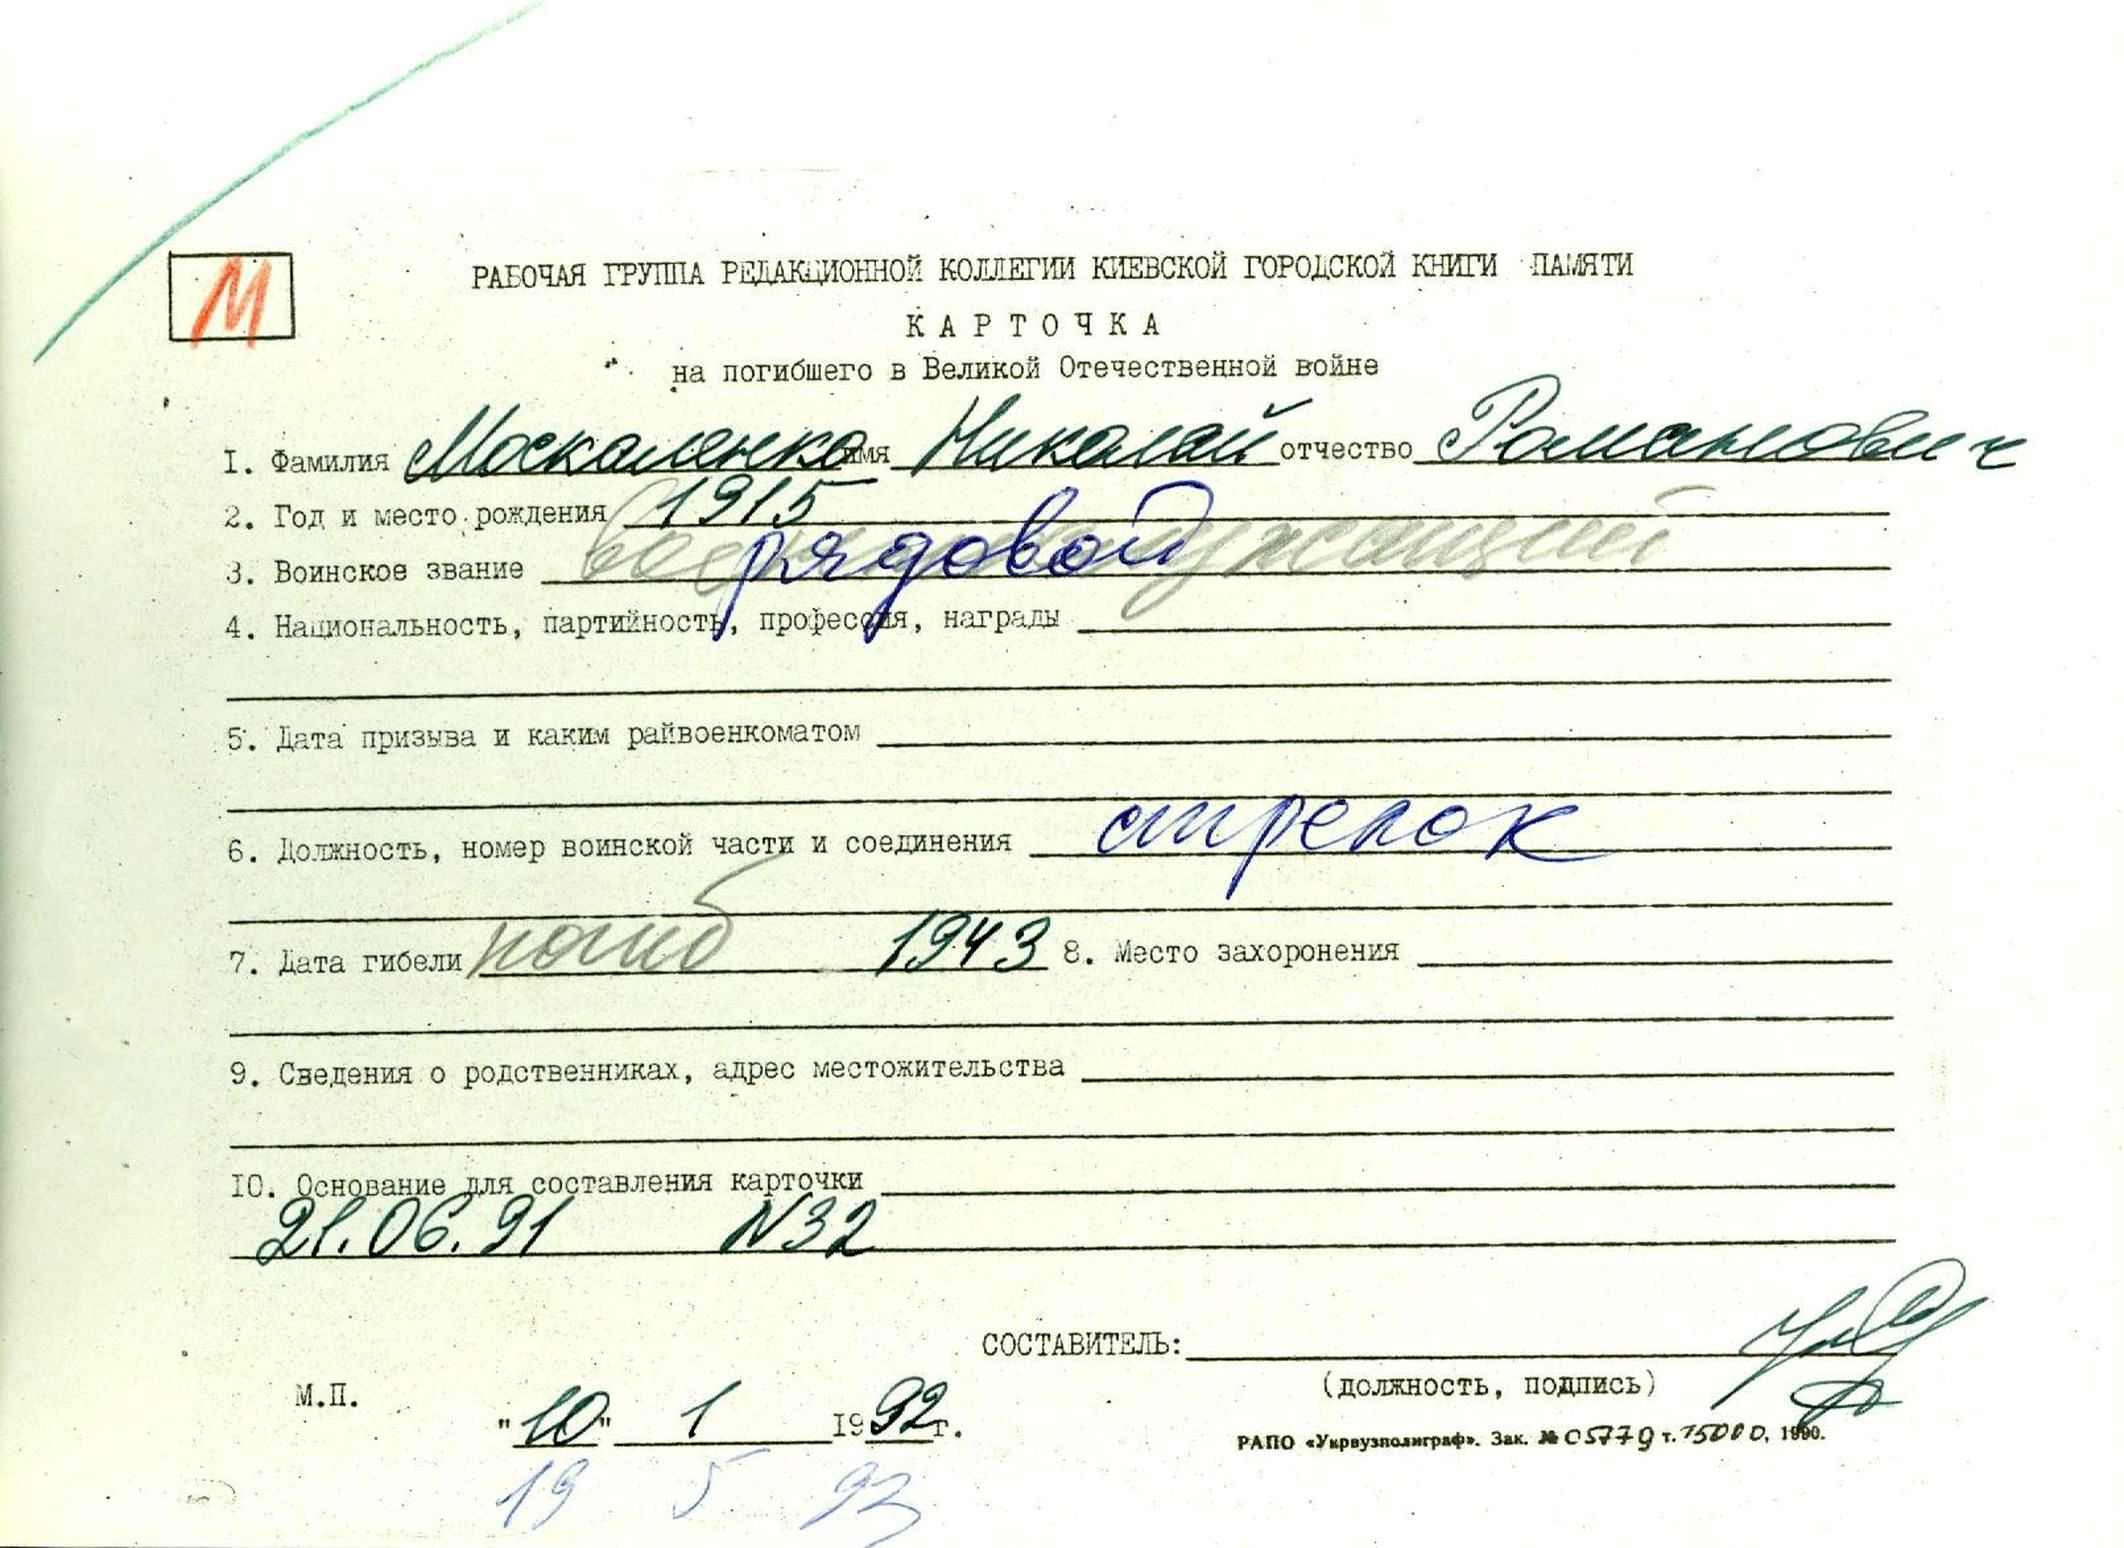 М
РАБОЧАЯ ГРУППА РЕДАКЦИОННОЙ КОЛЛЕГИИ КИЕВСКОЙ ГОРОДСКОЙ КНИГИ ПАМЯТИ
КАРТОЧКА
на погибшего в Великой Отечественной войне
I. Фамилия Москаленко имя Николай отчество Романович
2. Год и место рождения 1915
3. Воинское звание военнослужащий рядовой
4. Национальность, партийность, профессия, награды
5. Дата призыва и каким райвоенкоматом
6. Должность, номер воинской части и соединения стрелок
7. Дата гибели погиб 1943 8. Место захоронения
9. Сведения о родственниках, адрес местожительства
IO. Основание для составления карточки
21.06.91 N32
СОСТАВИТЕЛЬ:
(должность, подпись)
М.П.
"10" 1 1992г.
РАПО «Укрвузполиграф». Зак. № 05779 т. 15000, 1990.
19 5 92